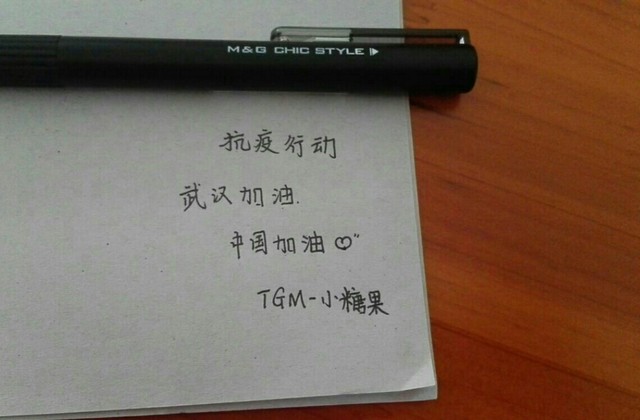 M&G CHIC STYLE
抗疫行动
武汉加油.
中国加油♡"
TGM-小糖果